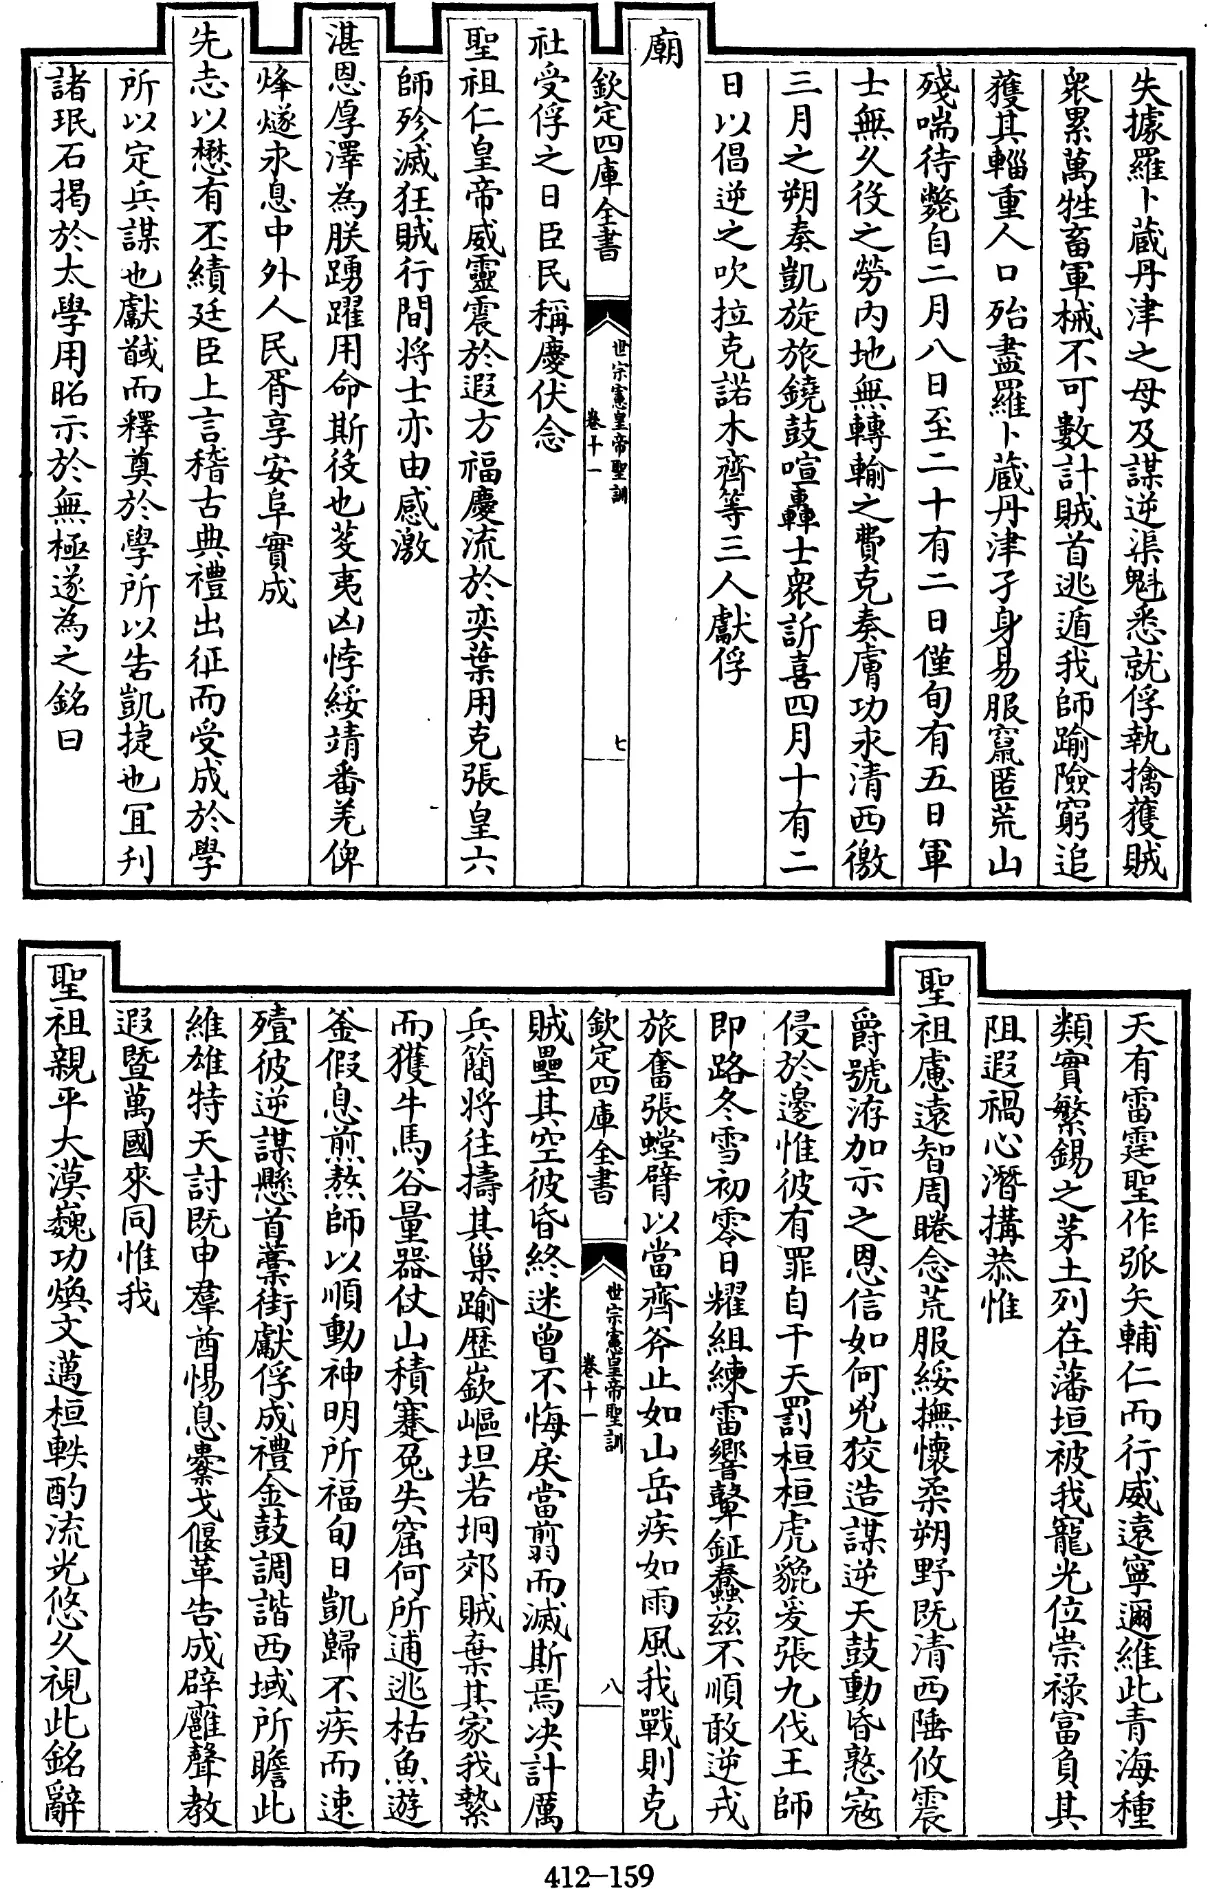 失據羅卜藏丹津之母及謀逆渠魁悉就俘執擒獲賊
衆累萬牲畜軍械不可數計賊首逃遁我師踰險窮追
獲其輜重人口殆盡羅卜藏丹津孑身易服竄匿荒山
殘喘待斃自二月八日至二十有二日僅旬有五日軍
士無久役之勞内地無轉輸之費克奏膚功永清西徼
三月之朔奏凱旋旅鐃鼓喧轟士衆訢喜四月十有二
日以倡逆之吹拉克諾木齊等三人獻俘
廟
欽定四庫全書
世宗憲皇帝聖訓
卷十一
七
社受俘之日臣民稱慶伏念
聖祖仁皇帝威靈震於遐方福慶流於奕葉用克張皇六
師殄滅狂賊行間将士亦由感激
湛恩厚澤為朕踴躍用命斯役也芟夷凶悖綏靖番羌俾
烽燧永息中外人民胥享安阜實成
先志以懋有丕績廷臣上言稽古典禮出征而受成於學
所以定兵謀也獻馘而釋奠於學所以告凱捷也宜刋
諸珉石揭於太學用昭示於無極遂為之銘曰
天有雷霆聖作弧矢輔仁而行威遠寧邇維此青海種
類實繁錫之茅土列在藩垣被我寵光位崇祿富負其
阻遐禍心潛搆恭惟
聖祖慮遠智周睠念荒服綏撫懷柔朔野既清西陲攸震
爵號洊加示之恩信如何兇狡造謀逆天鼓動昏憨寇
侵於邊惟彼有罪自干天罰桓桓虎貔爰張九伐王師
即路冬雪初零日耀組練雷響鼙鉦蠢兹不順敢逆戎
旅奮張螳臂以當齊斧止如山岳疾如雨風我戰則克
欽定四庫全書
世宗憲皇帝聖訓
卷十一
八
賊壘其空彼昏終迷曾不悔戾當翦而滅斯焉决計厲
兵簡将往擣其巢踰歷嶔嶇坦若坰郊賊棄其家我縶
而獲牛馬谷量器仗山積蹇兔失窟何所逋逃枯魚遊
釜假息煎熬師以順動神明所福旬日凱歸不疾而速
殪彼逆謀懸首藁街獻俘成禮金鼓調諧西域所瞻此
維雄特天討既申羣酋惕息櫜戈偃革告成辟廱聲教
遐暨萬國來同惟我
聖祖親平大漠巍功煥文邁桓軼酌流光悠久視此銘辭
412-159